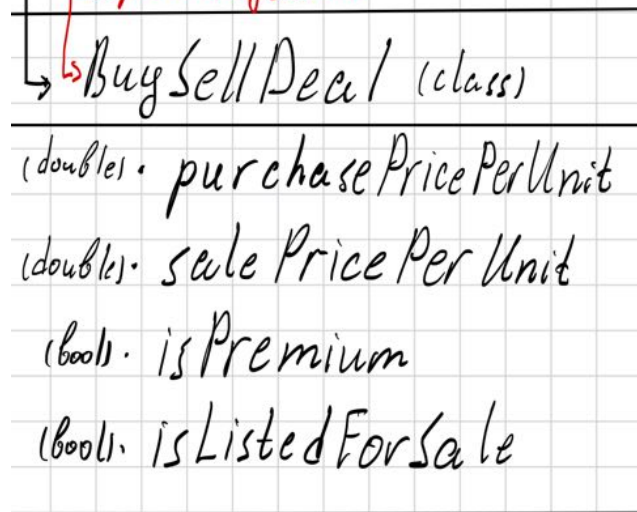 BuySellDeal (class)
(double). purchasePricePerUnit
(double). salePricePerUnit
(bool). isPremium
(bool). isListedForSale